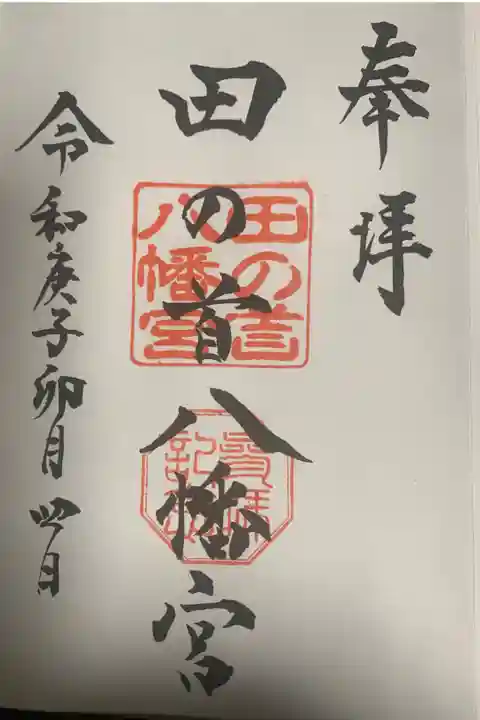 奉拝
田の首八幡宮
田の首
八幡宮
参拝
記念
令和庚子卯月四日